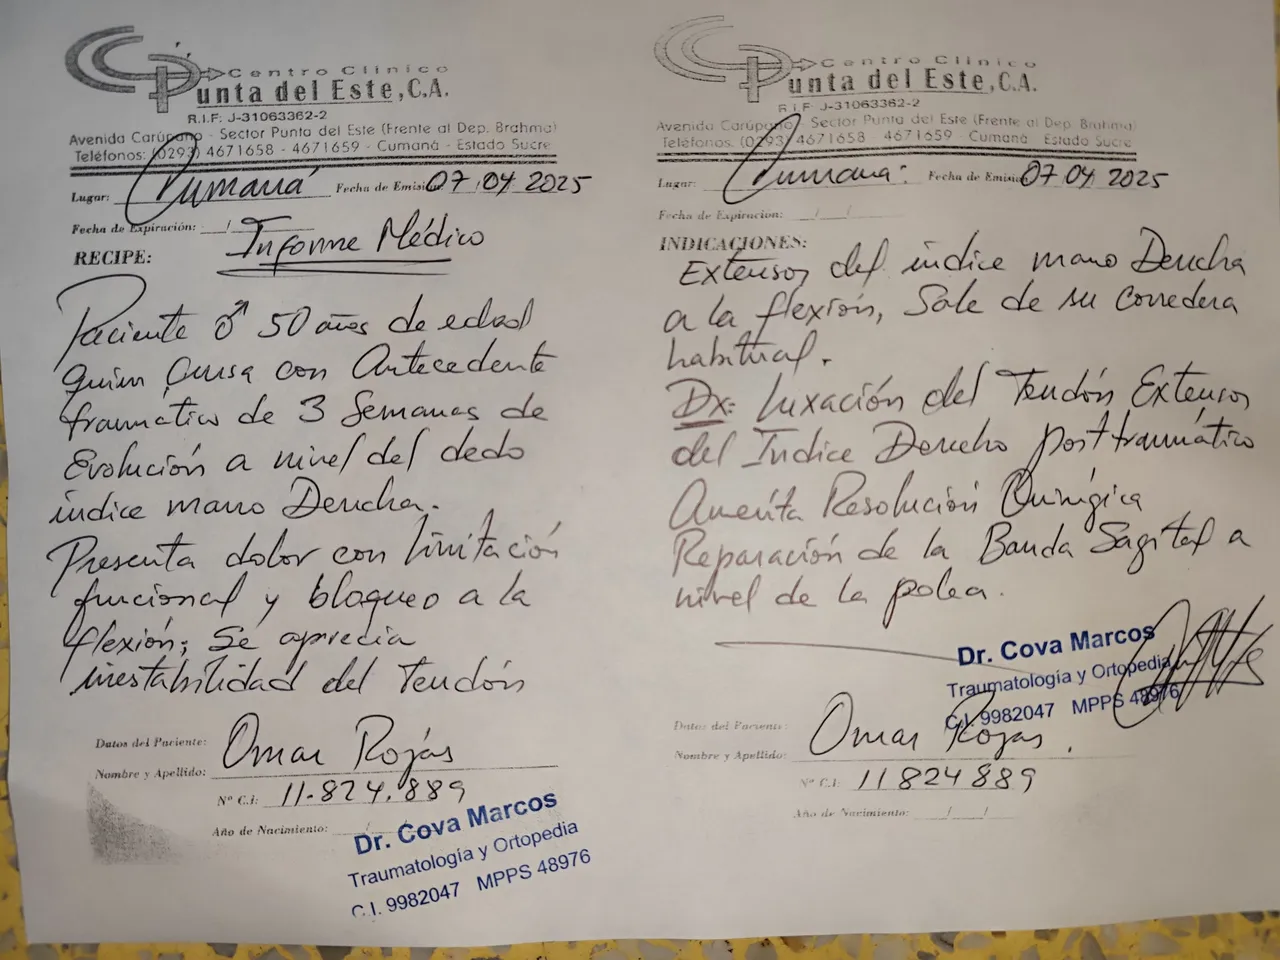 Centro Clínico
Punta del Este, C.A.
R.I.F: J-31063362-2
Avenida Carúpano - Sector Punta del Este (Frente al Dep. Brahma)
Teléfonos: (0293) 4671658 - 4671659 - Cumaná - Estado Sucre
Lugar: Cumaná Fecha de Emisión 07 04 2025
Fecha de Expiración: __/__
Informe Médico
RECIPE:
Paciente ♂ 50 años de edad
quien cursa con Antecedente
traumático de 3 Semanas de
Evolución a nivel del dedo
índice mano Derecha.
Presenta dolor con limitación
funcional y bloqueo a la
flexión; Se aprecia
inestabilidad del Tendón
Datos del Paciente:
Nombre y Apellido: Omar Rojas
Nº C.i: 11.824.889
Año de Nacimiento: __/__
Dr. Cova Marcos
Traumatología y Ortopedia
C.I. 9982047 MPPS 48976
Centro Clínico
Punta del Este, C.A.
R.I.F: J-31063362-2
Avenida Carúpano Sector Punta del Este (Frente al Dep. Brahma)
Teléfonos: (0293) 4671658 - 4671659 - Cumaná - Estado Sucre
Lugar: Cumaná. Fecha de Emisión 07 04 2025
Fecha de Expiración: __/__/
INDICACIONES:
Extensor del índice mano Derecha
a la flexión, Sale de su corredera
habitual.
Dx: Luxación del Tendón Extensor
del Indice Derecho posttraumático
Amerita Resolución Quirúgica
Reparación de la Banda Sagital a
nivel de la polea.
Dr. Cova Marcos
Traumatología y Ortopedia
C.I. 9982047 MPPS 48976
Datos del Paciente:
Nombre y Apellido: Omar Rojas.
Nº C.i: 11824889
Año de Nacimiento: __/__/__